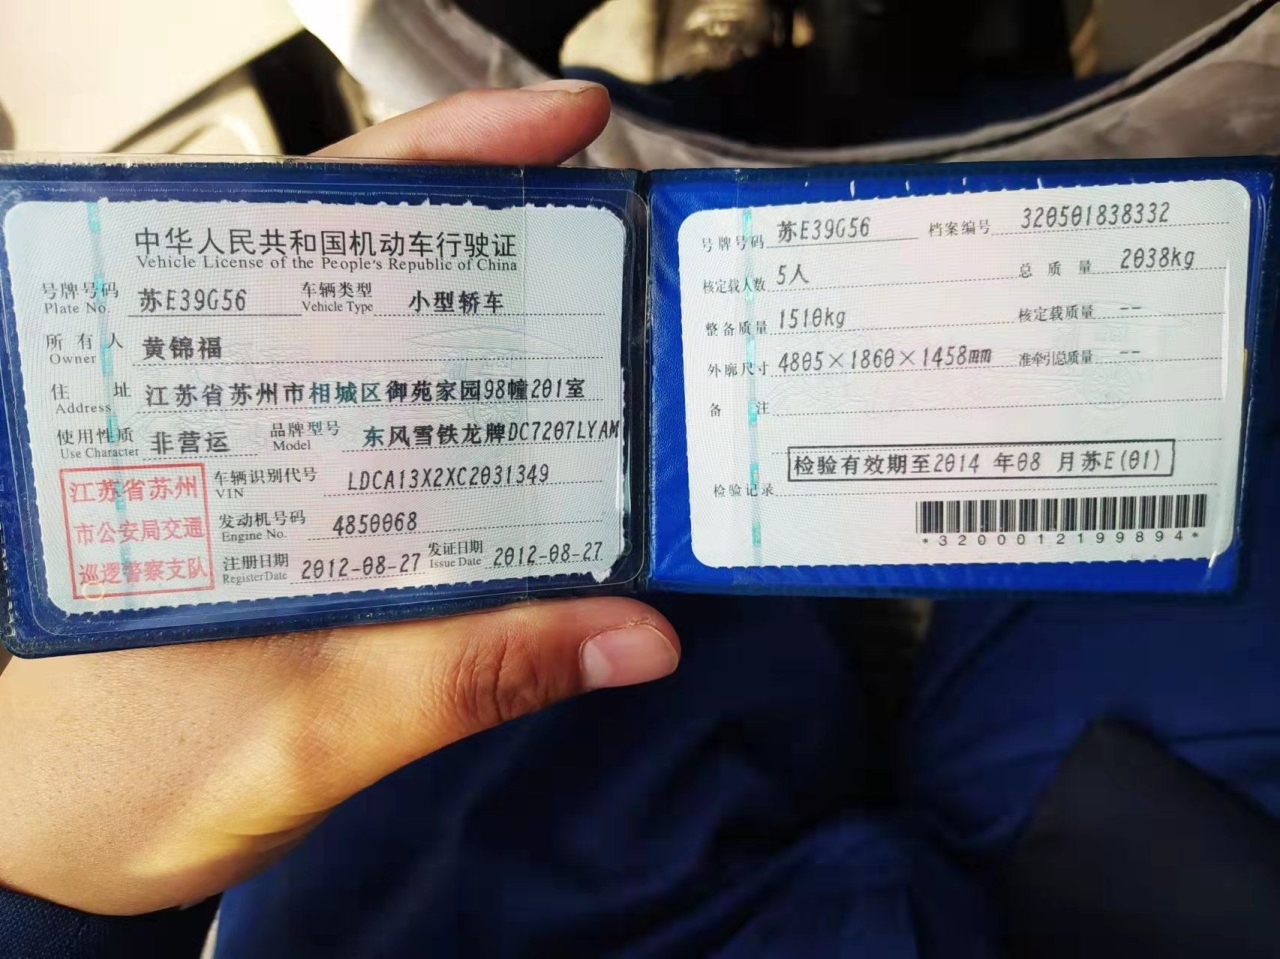 中华人民共和国机动车行驶证
Vehicle License of the People's Republic of China
号牌号码 苏E39G56 车辆类型 小型轿车
Plate No. Vehicle Type
所有人 黄锦福
Owner
住址 江苏省苏州市相城区御苑家园98幢201室
Address
使用性质 非营运 品牌型号 东风雪铁龙牌DC7207LYAM
Use Character Model
江苏省苏州
市公安局交通
巡逻警察支队
车辆识别代号 LDCA13X2XC2031349
VIN
发动机号码 4850068
Engine No.
注册日期 2012-08-27 发证日期 2012-08-27
Register Date Issue Date
号牌号码 苏E39G56 档案编号 320501838332
核定载人数 5人 总质量 2038kg
整备质量 1510kg 核定载质量 --
外廓尺寸 4805×1860×1458mm 准牵引总质量 --
备注
检验有效期至2014 年08 月苏E(01)
检验记录
*3200012199894*